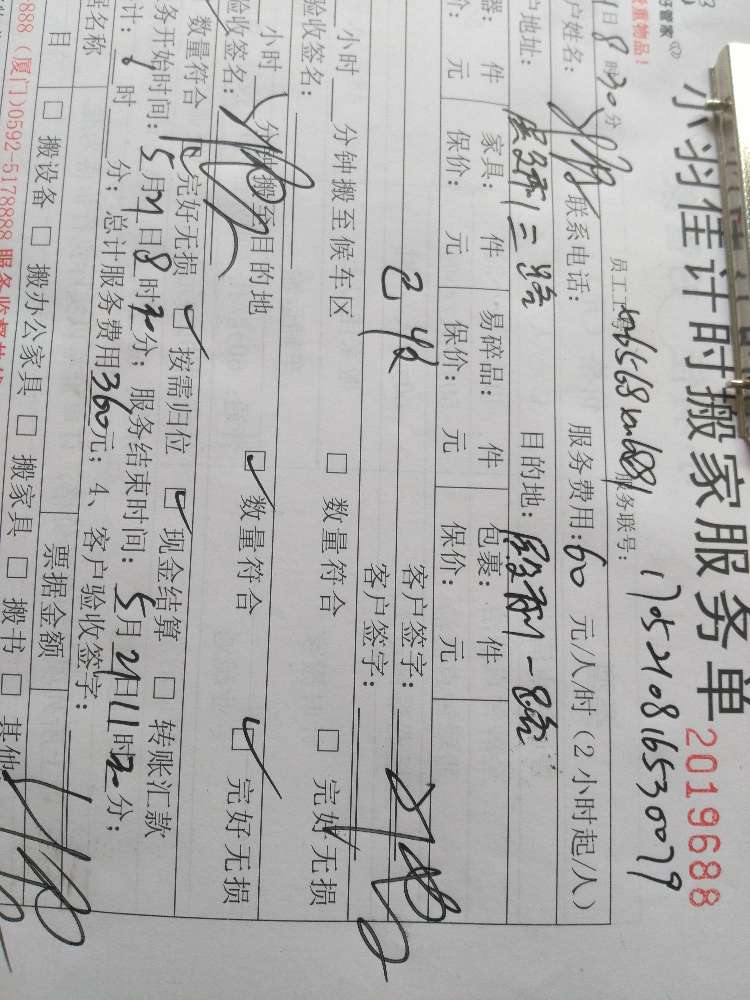 好管家
贵重物品！
小羽佳计时搬家服务单 2019688
员工工号: xm6568xm6881 服务联号: 1705210816530079
日8时30分
户姓名: 联系电话: 服务费用:60 元/人/时（2小时起/人）
户地址: 三路 目的地: 一路
器: 件 家具: 件 易碎品: 件 包裹: 件
价: 元 保价: 元 保价: 元 保价: 元
客户签字:
小时 分钟搬至候车区 □ 数量符合 □ 完好无损
验收签名: 客户签字:
小时 分钟搬至目的地 □ 数量符合 □ 完好无损
验收签名:
数量符合 □ 完好无损 □ 按需归位 □ 现金结算 □ 转账汇款
务开始时间: 5月21日8时30分; 服务结束时间: 5月21日11时30分;
计: 时 分; 总计服务费用360元; 4、客户验收签字:
居名称 票据金额
目 □ 搬设备 □ 搬办公家具 □ 搬家具 □ 搬书 □ 其他
888 (厦门)0592-5178888 服务监督热线